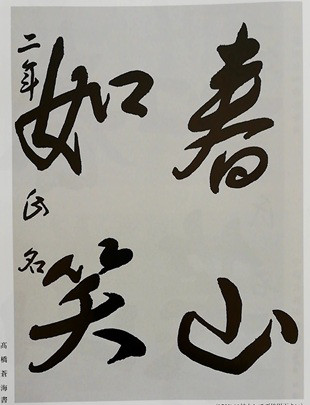 春山
如笑
二年 氏名
高橋蒼海書